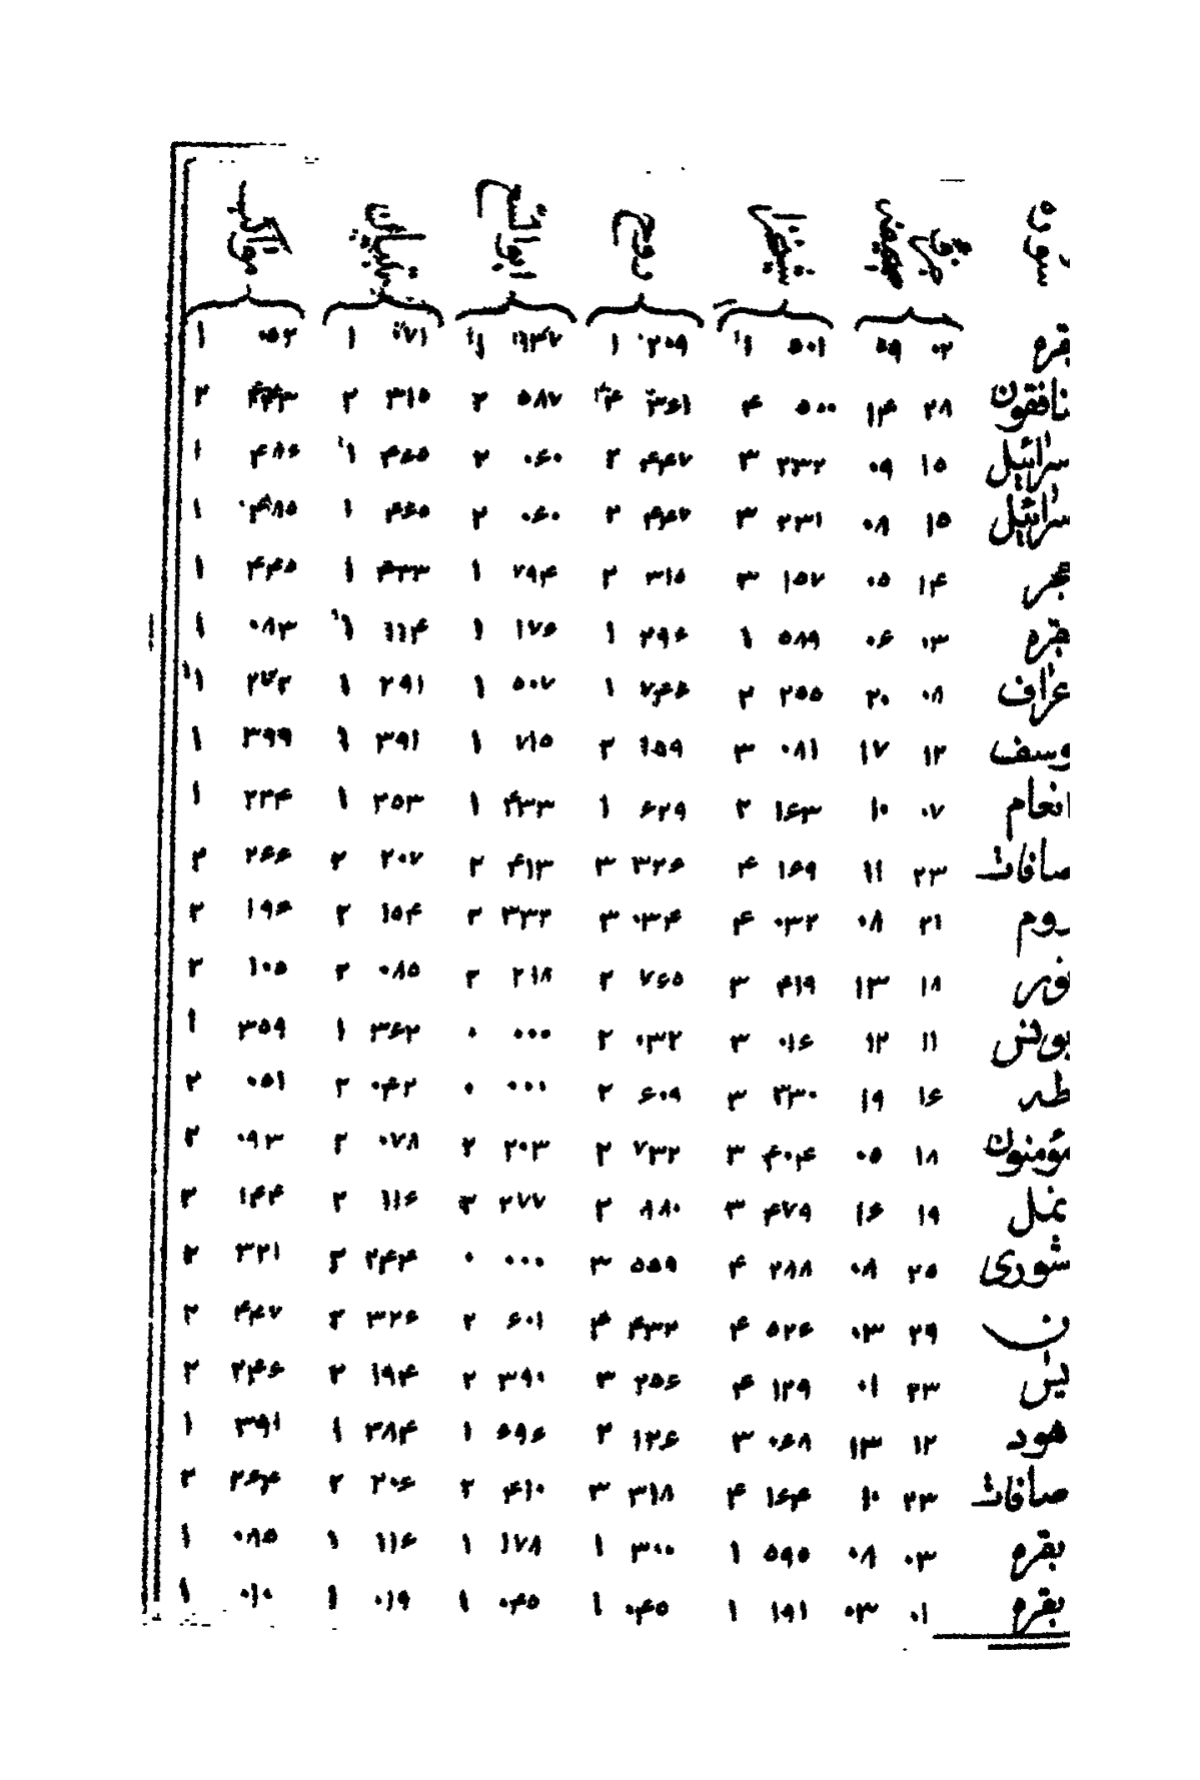 سوره
بقره ۰۲ ۵۹ ۵۰۱ ۱ ۲۵۹ ۱ ۱ ۰۷۱ ۱ ۰۵۲ ۱
نافقون ۲۸ ۱۴ ۵۰۰ ۴ ۳۶۱ ۴ ۵۸۷ ۲ ۳۱۵ ۲ ۲
سرائیل ۱۵ ۰۹ ۲۳۲ ۳ ۴۴۷ ۲ ۰۶۰ ۲ ۴۶۵ ۱ ۴۸۶ ۱
سرائیل ۱۵ ۰۸ ۲۳۱ ۳ ۴۴۷ ۲ ۰۶۰ ۲ ۴۶۵ ۱ ۴۸۵ ۱
حجر ۱۴ ۰۵ ۱۵۷ ۳ ۳۱۵ ۲ ۷۹۴ ۱ ۴۳۳ ۱ ۴۴۵ ۱
بقره ۰۳ ۰۶ ۵۸۹ ۱ ۲۹۶ ۱ ۱۷۶ ۱ ۱۱۴ ۱ ۰۸۳ ۱
عراف ۰۸ ۲۰ ۲۵۵ ۲ ۷۴۶ ۱ ۵۰۷ ۱ ۲۹۱ ۱ ۲۷۲ ۱
وسف ۱۲ ۱۷ ۰۸۱ ۳ ۱۵۹ ۲ ۷۱۵ ۱ ۳۹۱ ۱ ۳۹۹ ۱
انعام ۰۷ ۱۰ ۱۶۳ ۲ ۶۲۹ ۱ ۴۳۳ ۱ ۲۵۳ ۱ ۲۳۴ ۱
صافات ۲۳ ۱۱ ۱۶۹ ۴ ۳۲۶ ۳ ۴۱۳ ۲ ۲۰۷ ۲ ۲۶۶ ۲
روم ۲۱ ۰۸ ۰۳۲ ۴ ۰۳۴ ۳ ۳۳۲ ۲ ۱۵۴ ۲ ۱۹۶ ۲
نور ۱۸ ۱۳ ۴۱۹ ۳ ۷۶۵ ۲ ۲۱۸ ۲ ۰۸۵ ۲ ۱۰۵ ۲
یونس ۱۱ ۱۲ ۰۱۶ ۳ ۰۳۲ ۲ ۰۰۰ ۰ ۳۶۲ ۱ ۳۵۹ ۱
طه ۱۶ ۱۹ ۳۳۰ ۳ ۶۰۹ ۲ ۰۰۰ ۰ ۰۴۲ ۲ ۰۵۱ ۲
مؤمنون ۱۸ ۰۵ ۴۰۴ ۳ ۷۳۲ ۲ ۲۰۳ ۲ ۰۷۸ ۲ ۰۹۳ ۲
نمل ۱۹ ۱۶ ۴۷۹ ۳ ۸۸۰ ۲ ۲۷۷ ۲ ۱۱۶ ۲ ۱۴۴ ۲
شوری ۲۵ ۰۸ ۲۸۸ ۴ ۵۵۹ ۳ ۰۰۰ ۰ ۲۴۴ ۲ ۳۲۱ ۲
ن ۲۹ ۰۳ ۵۲۶ ۴ ۴۳۲ ۴ ۶۰۱ ۲ ۳۲۶ ۲ ۴۴۷ ۲
یس ۲۳ ۰۱ ۱۲۹ ۴ ۲۵۶ ۳ ۳۹۰ ۲ ۱۹۴ ۲ ۲۴۶ ۲
هود ۱۲ ۱۳ ۰۶۸ ۳ ۱۲۶ ۲ ۶۹۶ ۱ ۳۸۴ ۱ ۳۹۱ ۱
صافات ۲۳ ۱۰ ۱۶۴ ۴ ۳۱۸ ۳ ۴۱۰ ۲ ۲۰۶ ۲ ۲۶۴ ۲
بقره ۰۳ ۰۸ ۵۹۵ ۱ ۳۰۰ ۱ ۱۷۸ ۱ ۱۱۶ ۱ ۰۸۵ ۱
بقره ۰۱ ۰۳ ۱۹۱ ۱ ۰۴۵ ۱ ۰۴۵ ۱ ۰۱۹ ۱ ۰۱۰ ۱